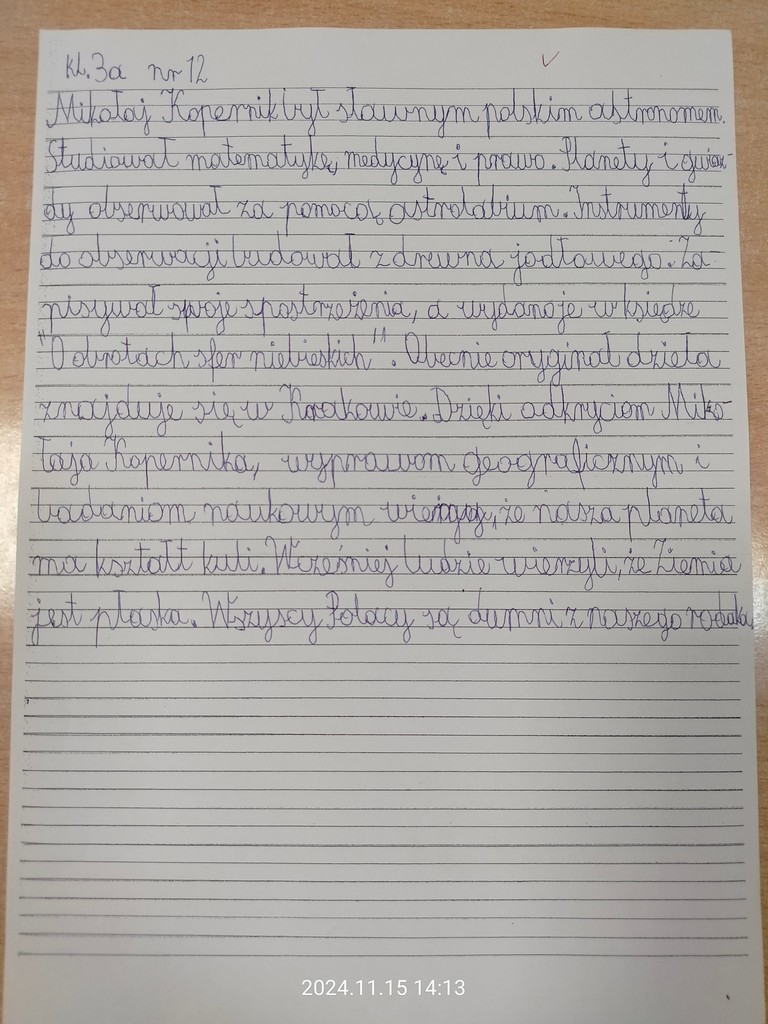 kl. 3a nr 12
Mikołaj Kopernik był sławnym polskim astronomem.
Studiował matematykę, medycynę i prawo. Planety i gwiaz-
dy obserwował za pomocą astrolabium. Instrumenty
do obserwacji budował z drewna jodłowego. Za-
pisywał swoje spostrzeżenia, a wydano je w księdze
"O obrotach sfer niebieskich". Obecnie oryginał dzieła
znajduje się w Krakowie. Dzięki odkryciom Miko-
łaja Kopernika, wyprawom geograficznym i
badaniom naukowym wiemy, że nasza planeta
ma kształt kuli. Wcześniej ludzie wierzyli, że Ziemia
jest płaska. Wszyscy Polacy są dumni z naszego rodaka.
2024.11.15 14:13